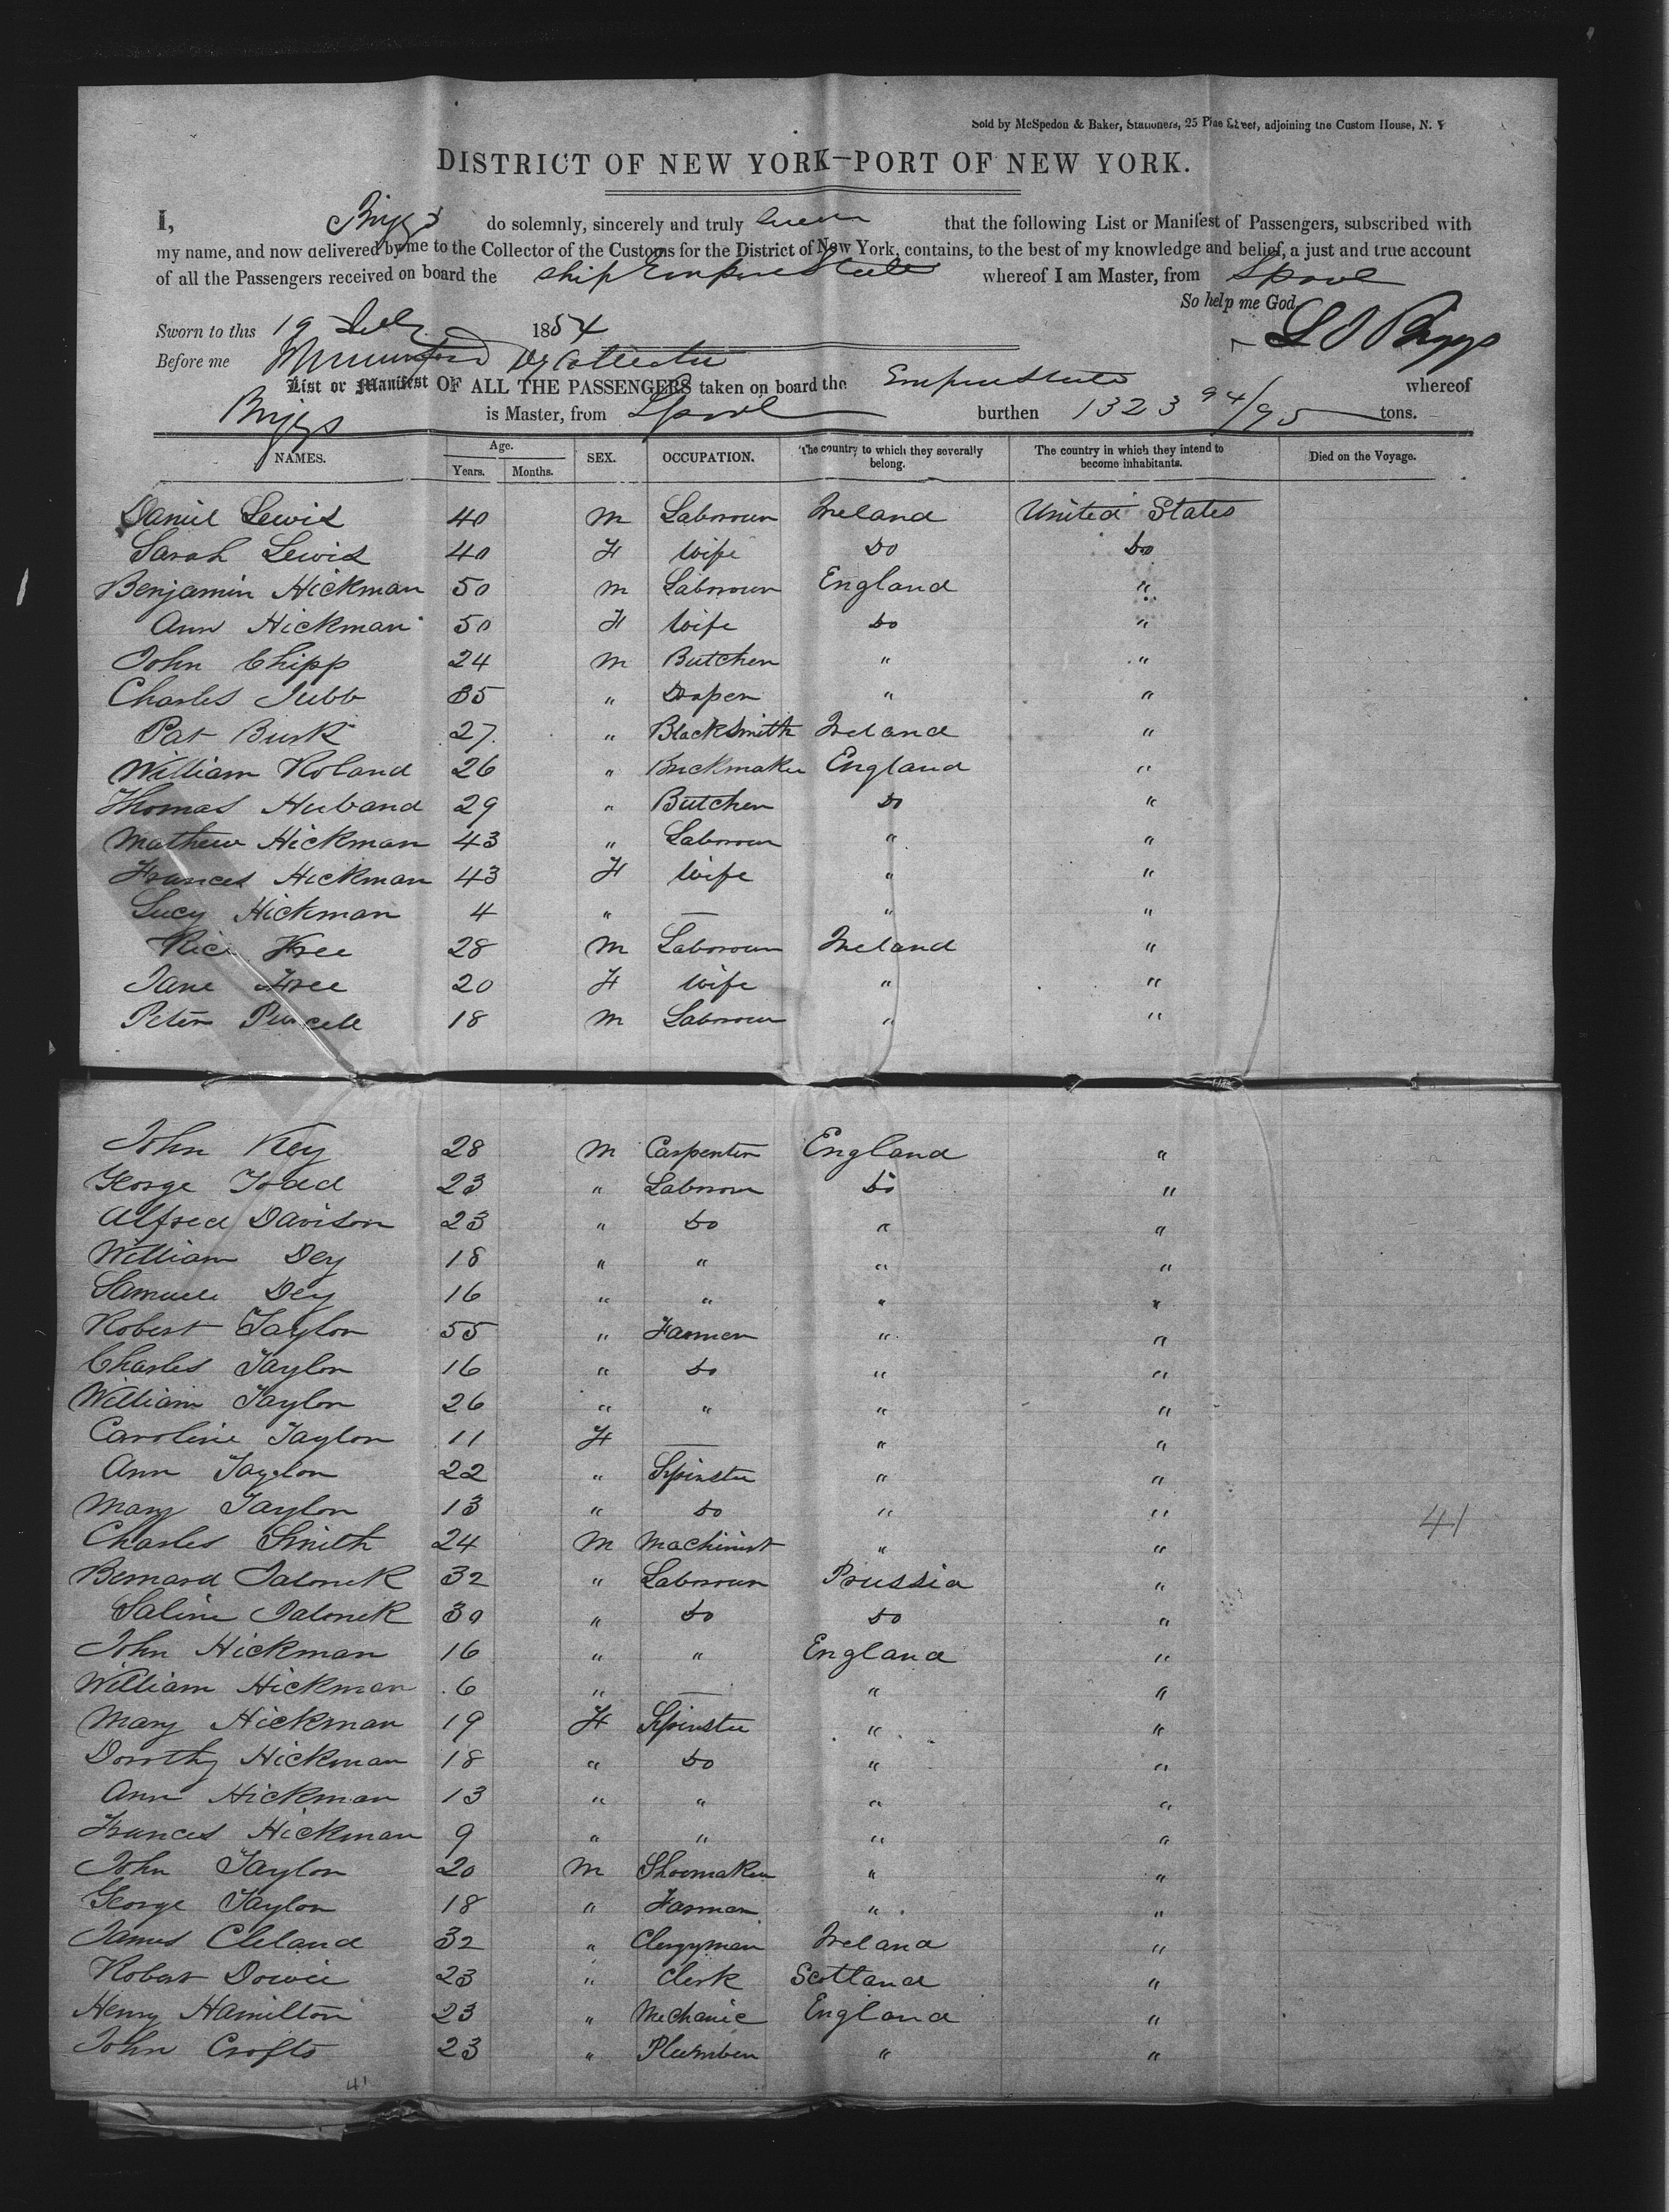 Sold by McSpedon & Baker, Stationers, 25 Pine Street, adjoining the Custom House, N. Y
DISTRICT OF NEW YORK—PORT OF NEW YORK.
I, Briggs do solemnly, sincerely and truly swear that the following List or Manifest of Passengers, subscribed with
my name, and now delivered by me to the Collector of the Customs for the District of New York, contains, to the best of my knowledge and belief, a just and true account
of all the Passengers received on board the Ship Empire State whereof I am Master, from Lpool
So help me God
Sworn to this 19 July 1854 Briggs
Before me Dy Collector
List or Manifest OF ALL THE PASSENGERS taken on board the Empire State whereof
Briggs is Master, from Lpool burthen 1323 94/95 tons.
NAMES. Age. Years. Months. SEX. OCCUPATION. The country to which they severally belong. The country in which they intend to become inhabitants. Died on the Voyage.
Daniel Lewis 40 M Labourer Ireland United States
Sarah Lewis 40 F Wife Do Do
Benjamin Hickman 50 M Labourer England "
Ann Hickman 50 F Wife Do "
John Chipp 24 M Butcher " "
Charles Jubb 35 " Draper " "
Pat Burk 27 " Blacksmith Ireland "
William Roland 26 " Brickmaker England "
Thomas Huband 29 " Butcher Do "
Mathew Hickman 43 " Labourer " "
Frances Hickman 43 F Wife " "
Lucy Hickman 4 " — " "
Rice Free 28 M Labourer Ireland "
Jane Free 20 F Wife " "
Peter Purcell 18 M Labourer " "
John Key 28 M Carpenter England "
George Todd 23 " Labourer Do "
Alfred Davison 23 " Do " "
William Dey 18 " " " "
Samuel Dey 16 " " " "
Robert Taylor 55 " Farmer " "
Charles Taylor 16 " Do " "
William Taylor 26 " " " "
Caroline Taylor 11 F — " "
Ann Taylor 22 " Spinster " "
Mary Taylor 13 " Do " " 41
Charles Smith 24 M Machinist " "
Bernard Jalonek 32 " Labourer Prussia "
Saline Jalonek 30 " Do Do "
John Hickman 16 " " England "
William Hickman 6 " — " "
Mary Hickman 19 F Spinster " "
Dorothy Hickman 18 " Do " "
Ann Hickman 13 " " " "
Frances Hickman 9 " " " "
John Taylor 20 M Shoemaker " "
George Taylor 18 " Farmer " "
James Cleland 32 " Clergyman Ireland "
Robert Dowie 23 " Clerk Scotland "
Henry Hamilton 23 " Mechanic England "
John Crofts 23 " Plumber " "
41